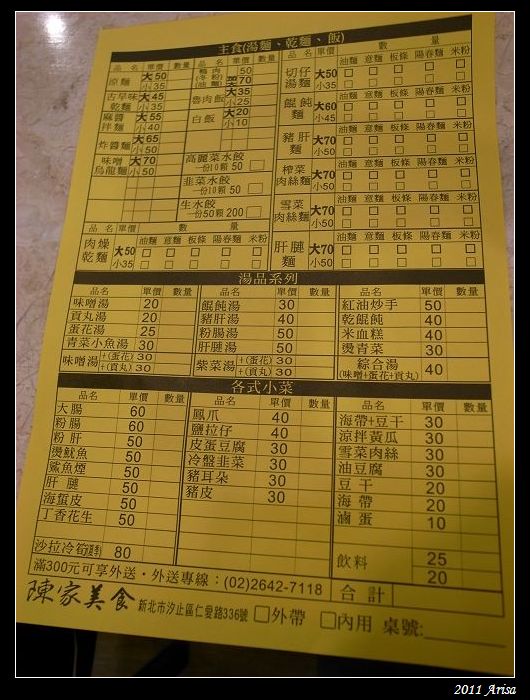 主食(湯麵、乾麵、飯)
品名 單價 數量
原麵 大50 小35
古早味乾麵 大45 小35
麻醬拌麵 大55 小40
炸醬麵 大65 小50
味噌烏龍麵 大70 小50
肉燥乾麵 大50 小35
油麵 意麵 板條 陽春麵 米粉
品名 單價 數量
鴨肉(冬粉)(油麵) 50 大70
魯肉飯 大35 小25
白飯 大20 小10
高麗菜水餃 一份10顆 50
韭菜水餃 一份10顆 50
生水餃 一份50顆 200
品名 單價 數量
油麵 意麵 板條 陽春麵 米粉
切仔湯麵 大50 小35
餛飩麵 大60 小45
豬肝麵 大70 小50
榨菜肉絲麵 大70 小50
雪菜肉絲麵 大70 小50
肝腱麵 大70 小50
湯品系列
品名 單價 數量 品名 單價 數量 品名 單價 數量
味噌湯 20 餛飩湯 30 紅油炒手 50
貢丸湯 20 豬肝湯 40 乾餛飩 40
蛋花湯 25 粉腸湯 50 米血糕 40
青菜小魚湯 30 肝腱湯 50 燙青菜 30
味噌湯 +(蛋花) 30 +(貢丸) 30 紫菜湯 +(蛋花) 30 +(貢丸) 30 綜合湯 (味噌+蛋花+貢丸) 40
各式小菜
品名 單價 數量 品名 單價 數量 品名 單價 數量
大腸 60 鳳爪 40 海帶+豆干 30
粉腸 60 鹽拉仔 40 涼拌黃瓜 30
粉肝 50 皮蛋豆腐 30 雪菜肉絲 30
燙魷魚 50 冷盤韭菜 30 油豆腐 30
鯊魚煙 50 豬耳朵 30 豆干 20
肝腱 50 豬皮 30 海帶 20
海蜇皮 50 滷蛋 10
丁香花生 50
沙拉冷筍 80 飲料 25 20
滿300元可享外送・外送專線：(02)2642-7118 合計
陳家美食 新北市汐止區仁愛路336號 □外帶 □內用 桌號:
2011 Arisa